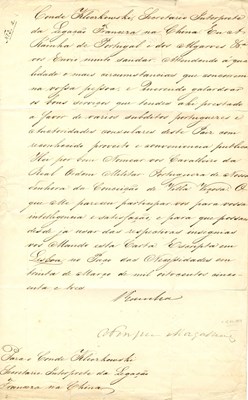 Conde Kleczkowski, Secretario Interprete
da Legação Franceza na China. Eu A
Rainha de Portugal e dos Algarves &ª
vos Envio muito saudar. Attendendo á qua
lidade e mais circumstancias que concorrem
na vossa pessoa, e Querendo galardoar
os bons serviços que tendes ahi prestado
a favor de varios subditos portuguezes e
Authoridades consulares deste Paiz com
reconhecido proveito e conveniencia publica
Hei por bem Nomear vos Cavalleiro da
Real Ordem Militar Portugueza de Nossa
Senhora da Conceição de Villa Viçosa. O
que Me pareceu participar vos para vossa
intelligencia e satisfação e para que possaes
desde já usar das respectivas insignias
vos Mando esta Carta. Escripta em
Lisboa, no Paço das Necessidades em
trinta de Março de mil oitocentos cincoen
ta e tres
Rainha
Para o Conde Kleczkowski
Secretario Interprete da Legação
Franceza na China